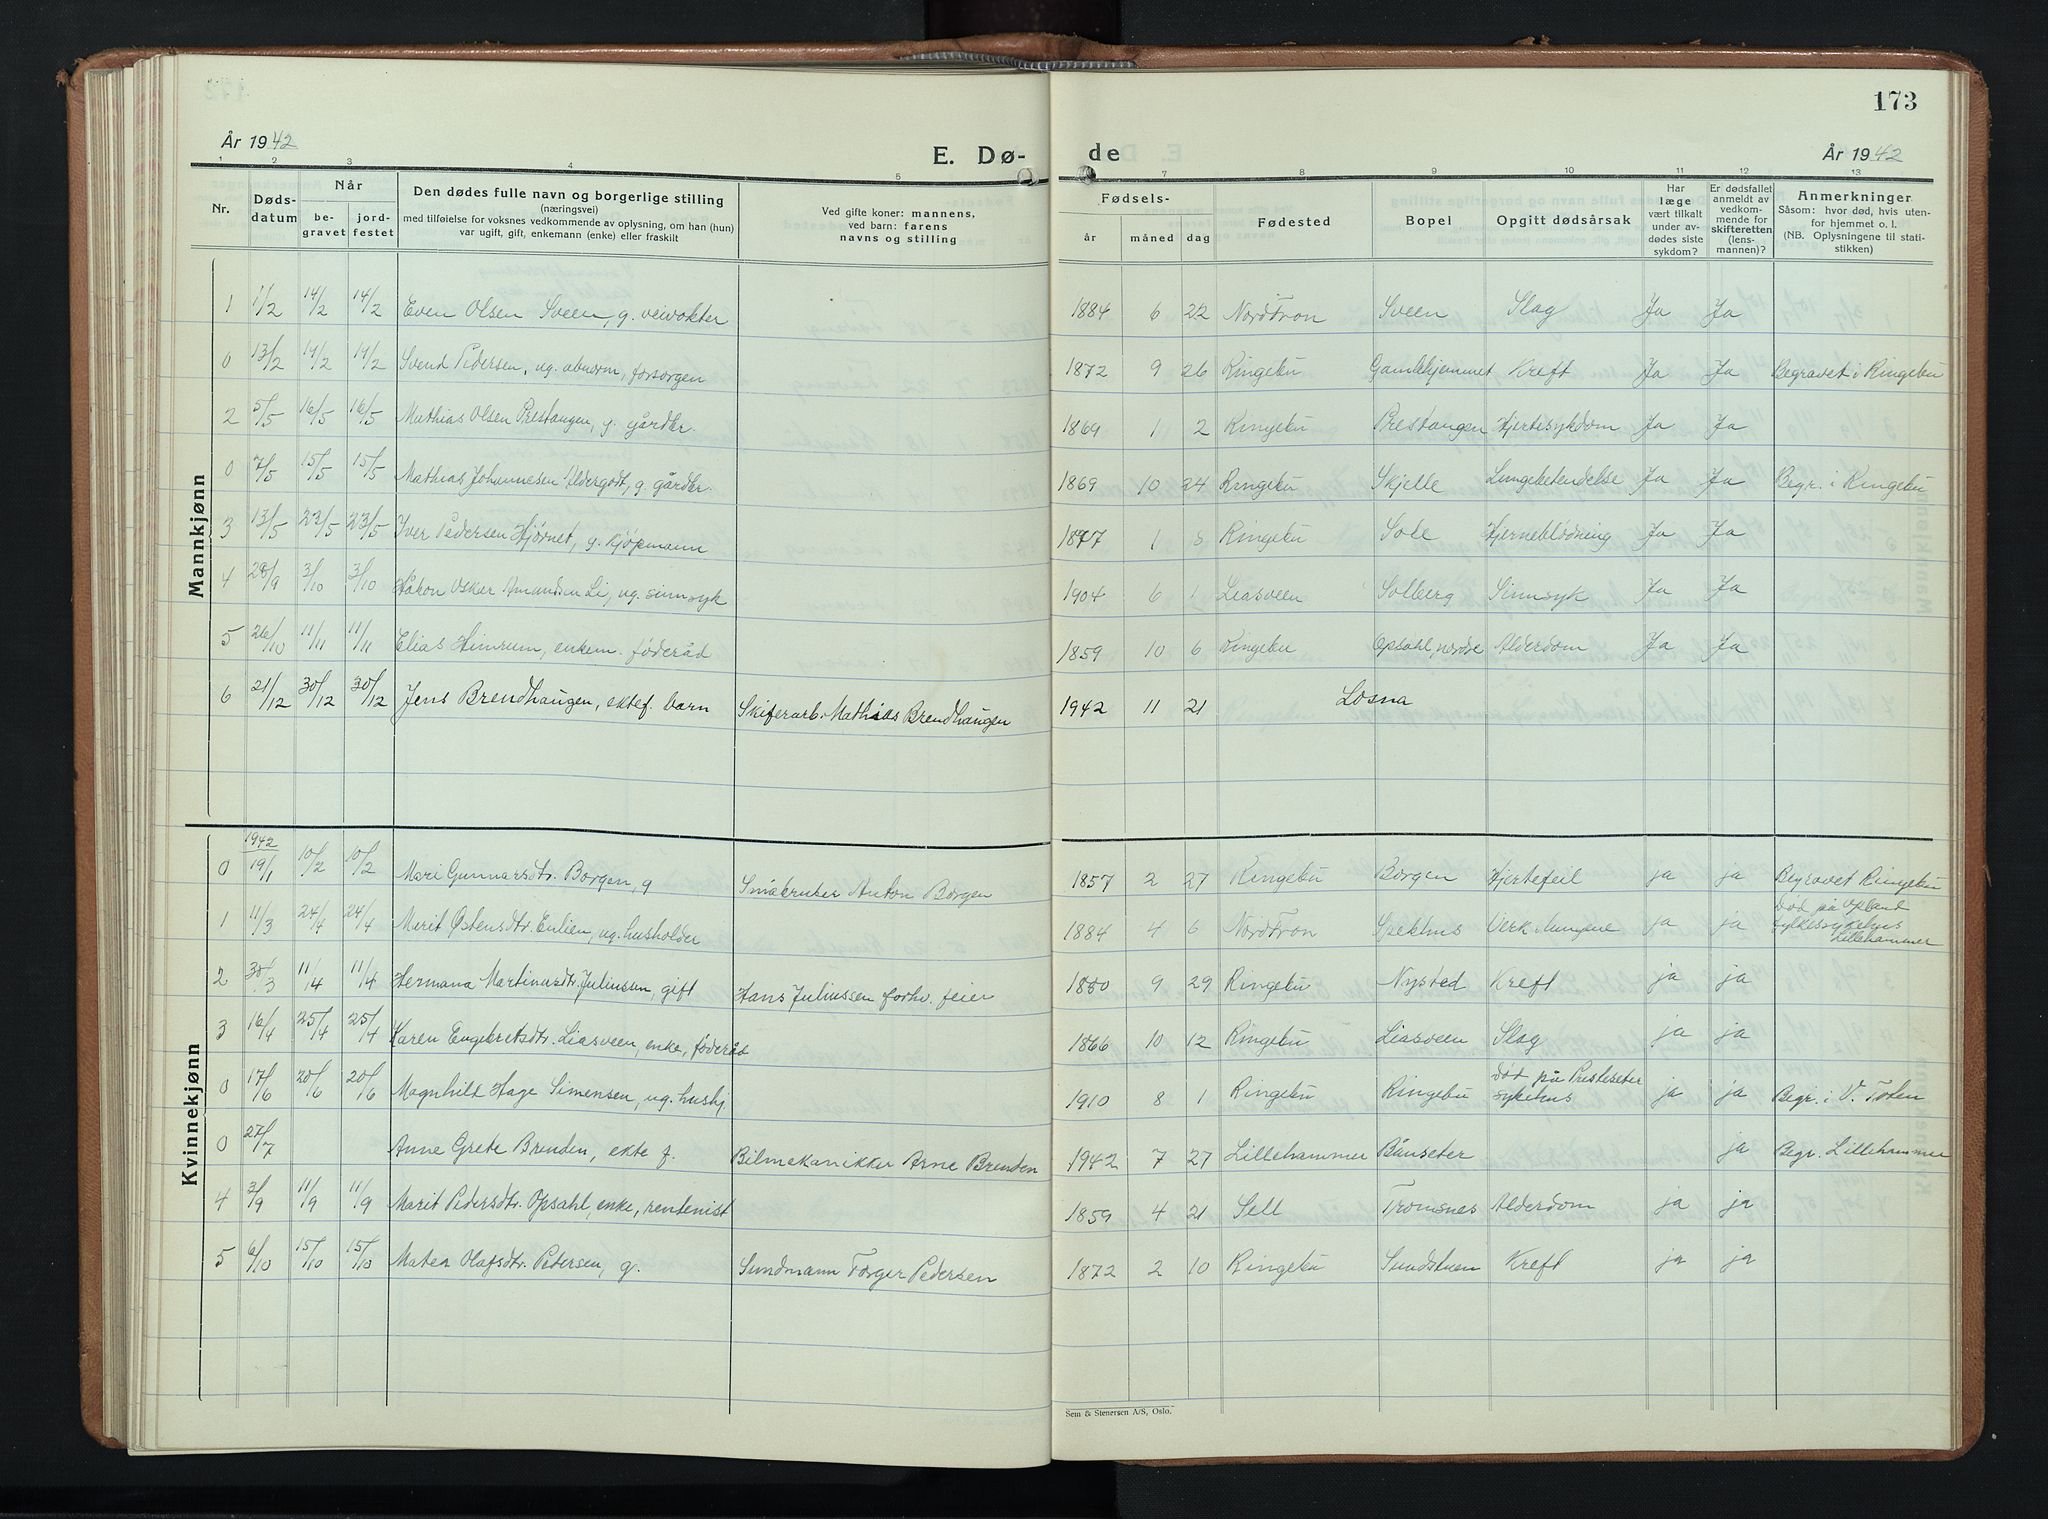 173
År 1942
E. Dø-
de
År 1942
1 2 3 4 5 7 8 9 10 11 12 13
Nr.
Døds-
datum
Når
be-
gravet
jord-
festet
Den dødes fulle navn og borgerlige stilling
(næringsvei)
med tilføielse for voksnes vedkommende av oplysning, om han (hun)
var ugift, gift, enkemann (enke) eller fraskilt
Ved gifte koner: mannens,
ved barn: farens
navns og stilling
Fødsels-
år måned dag
Fødested
Bopel
Opgitt dødsårsak
Har
læge
vært tilkalt
under av-
dødes siste
sykdom?
Er dødsfallet
anmeldt av
vedkom-
mende for
skifteretten
(lens-
mannen)?
Anmerkninger
Såsom: hvor død, hvis uten-
for hjemmet o. l.
(NB. Oplysningene til stati-
stikken)
Mannkjønn
1 1/2 14/2 14/2 Even Olsen Sveen, g. veivokter 1884 6 22 Nord Fron Sveen Slag Ja Ja
0 13/2 14/2 14/2 Svend Pedersen, ug. abnorm, forsorgen 1872 9 26 Ringebu Gamlehjemmet Kreft Ja Ja Begravet i Ringebu
2 5/5 16/5 16/5 Mathias Olsen Prestangen, g. gårdbr. 1869 1 2 Ringebu Prestangen Hjertesykdom Ja Ja
0 7/5 15/5 15/5 Mathias Johannesen Aldergodt, g. gårdbr. 1869 10 24 Ringebu Skjelle Lungebetendelse Ja Ja Begr. i Ringebu
3 13/5 23/5 23/5 Iver Pedersen Hjørnet, g. kjøpmann 1877 1 8 Ringebu Sole Hjerneblødning Ja Ja
4 28/9 3/10 3/10 Håkon Oskar Amundsen Li, ug. sinnsyk 1904 6 1 Liasveen Solberg Sinnsyk Ja Ja
5 26/10 11/11 11/11 Elias Himrum, enkem. føderåd 1859 10 6 Ringebu Opsahl, nordre Alderdom Ja Ja
6 21/12 30/12 30/12 Jens Brendhaugen, ektef. barn Skiferarb. Mathias Brendhaugen 1942 11 21 Losna
Kvinnekjønn
1942
0 19/1 10/2 10/2 Mari Gunnarsdtr. Borgen, g Småbruker Anton Borgen 1857 2 27 Ringebu Borgen Hjertefeil ja ja Begravet Ringebu
1 11/3 24/4 24/4 Marit Østensdtr. Enlien, ug. husholder 1884 4 6 Nord Fron Spekhus Verk i lungene ja ja Død på Opland
fylkessykehus
Lillehammer
2 30/3 11/4 11/4 Hermana Martinusdtr. Juliussen, gift Hans Juliussen forhv. feier 1880 9 29 Ringebu Nysted Kreft ja ja
3 16/4 25/4 25/4 Karen Engebretsdtr. Liasveen, enke, føderåd 1866 10 12 Ringebu Liasveen Slag ja ja
0 17/6 20/6 20/6 Magnhild Hage Simensen, ug. hushj. 1910 8 1 Ringebu Ringebu Død på Presteseter
sykehus ja ja Begr. i V. Toten
0 27/7 Anne Grete Brenden, ekte f. Bilmekanikker Arne Brenden 1942 7 27 Lillehammer Bånseter ja Begr. Lillehammer
4 3/9 11/9 11/9 Marit Pedersdtr. Opsahl, enke, rentenist 1859 4 21 Sell Tromsnes Alderdom ja ja
5 6/10 15/10 15/10 Matea Olafsdtr. Pedersen, g. Sundmann Torger Pedersen 1872 2 10 Ringebu Sundstuen Kreft ja ja
Sem & Stenersen A/S, Oslo.